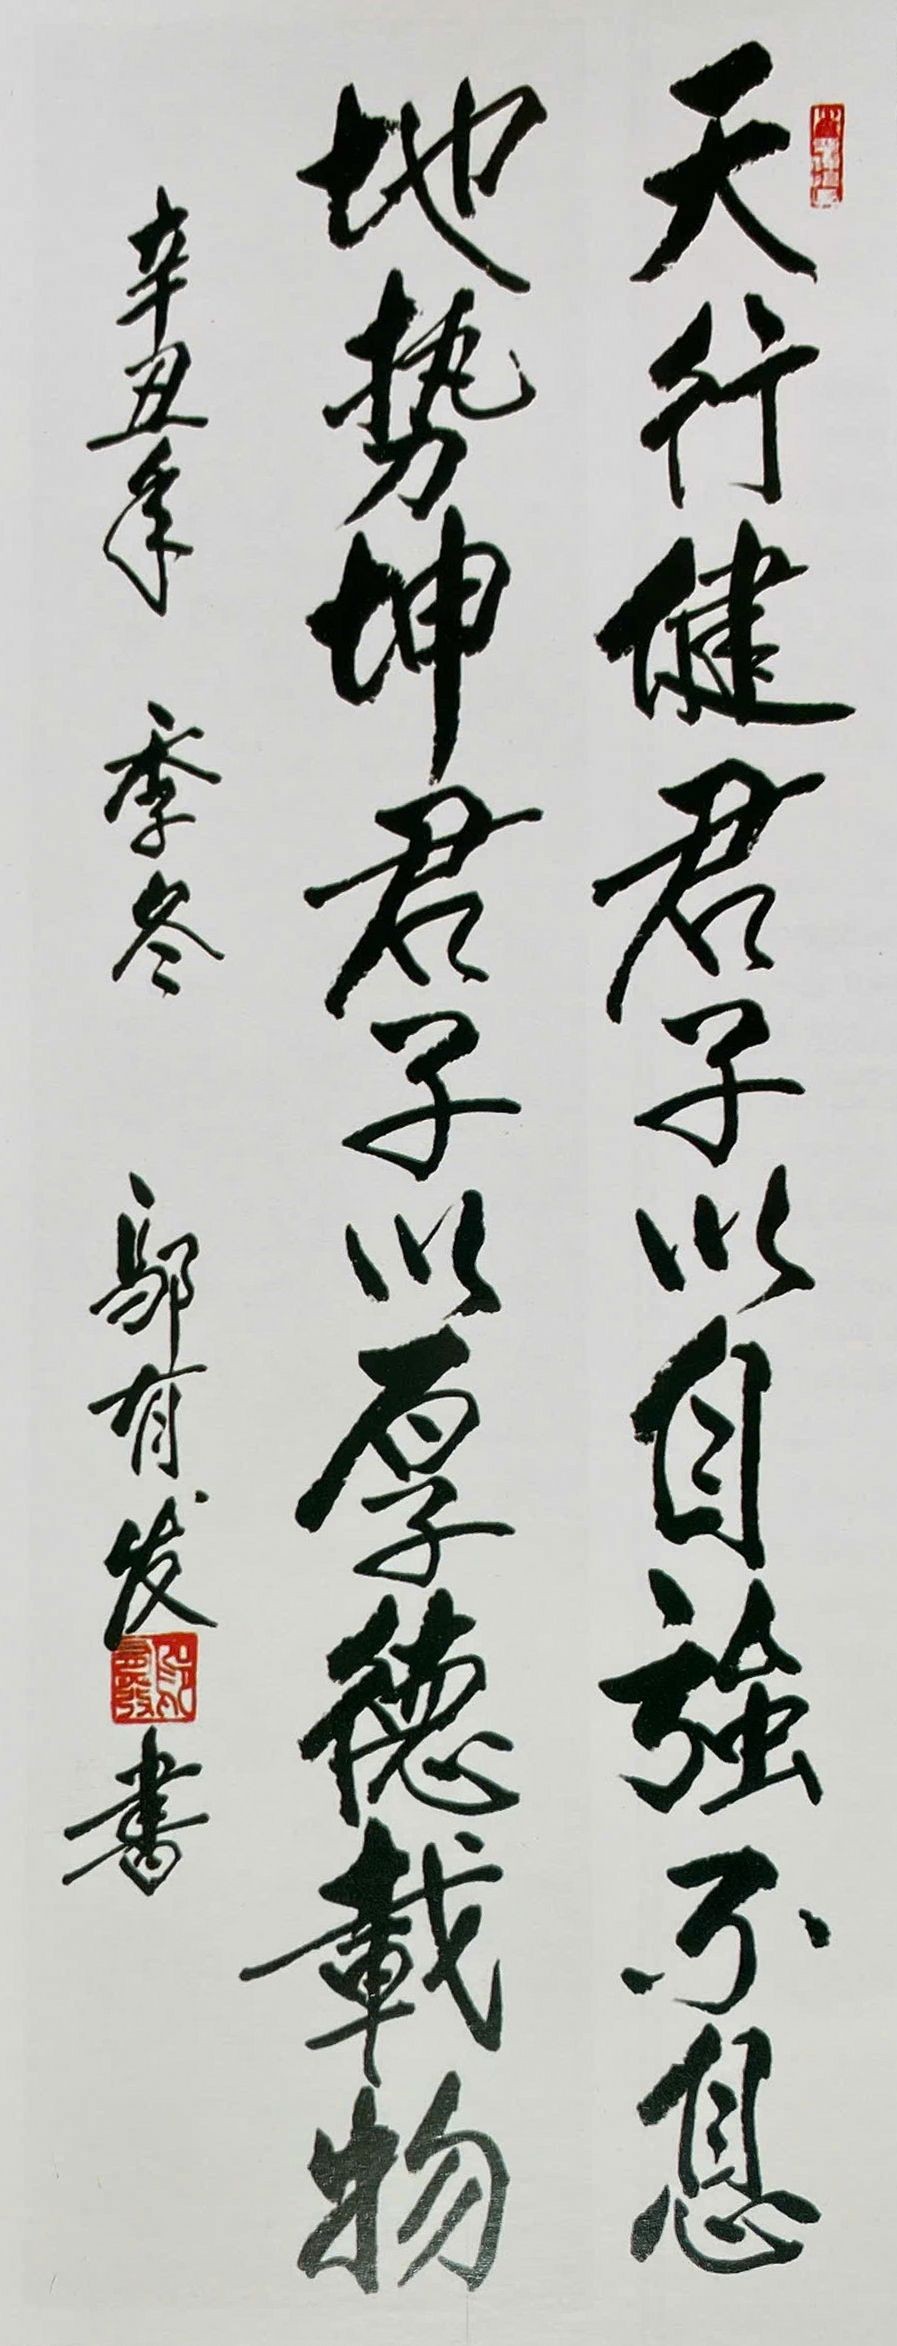 天行健君子以自強不息
地势坤君子以厚德載物
辛丑年 季冬 鄔有发 書